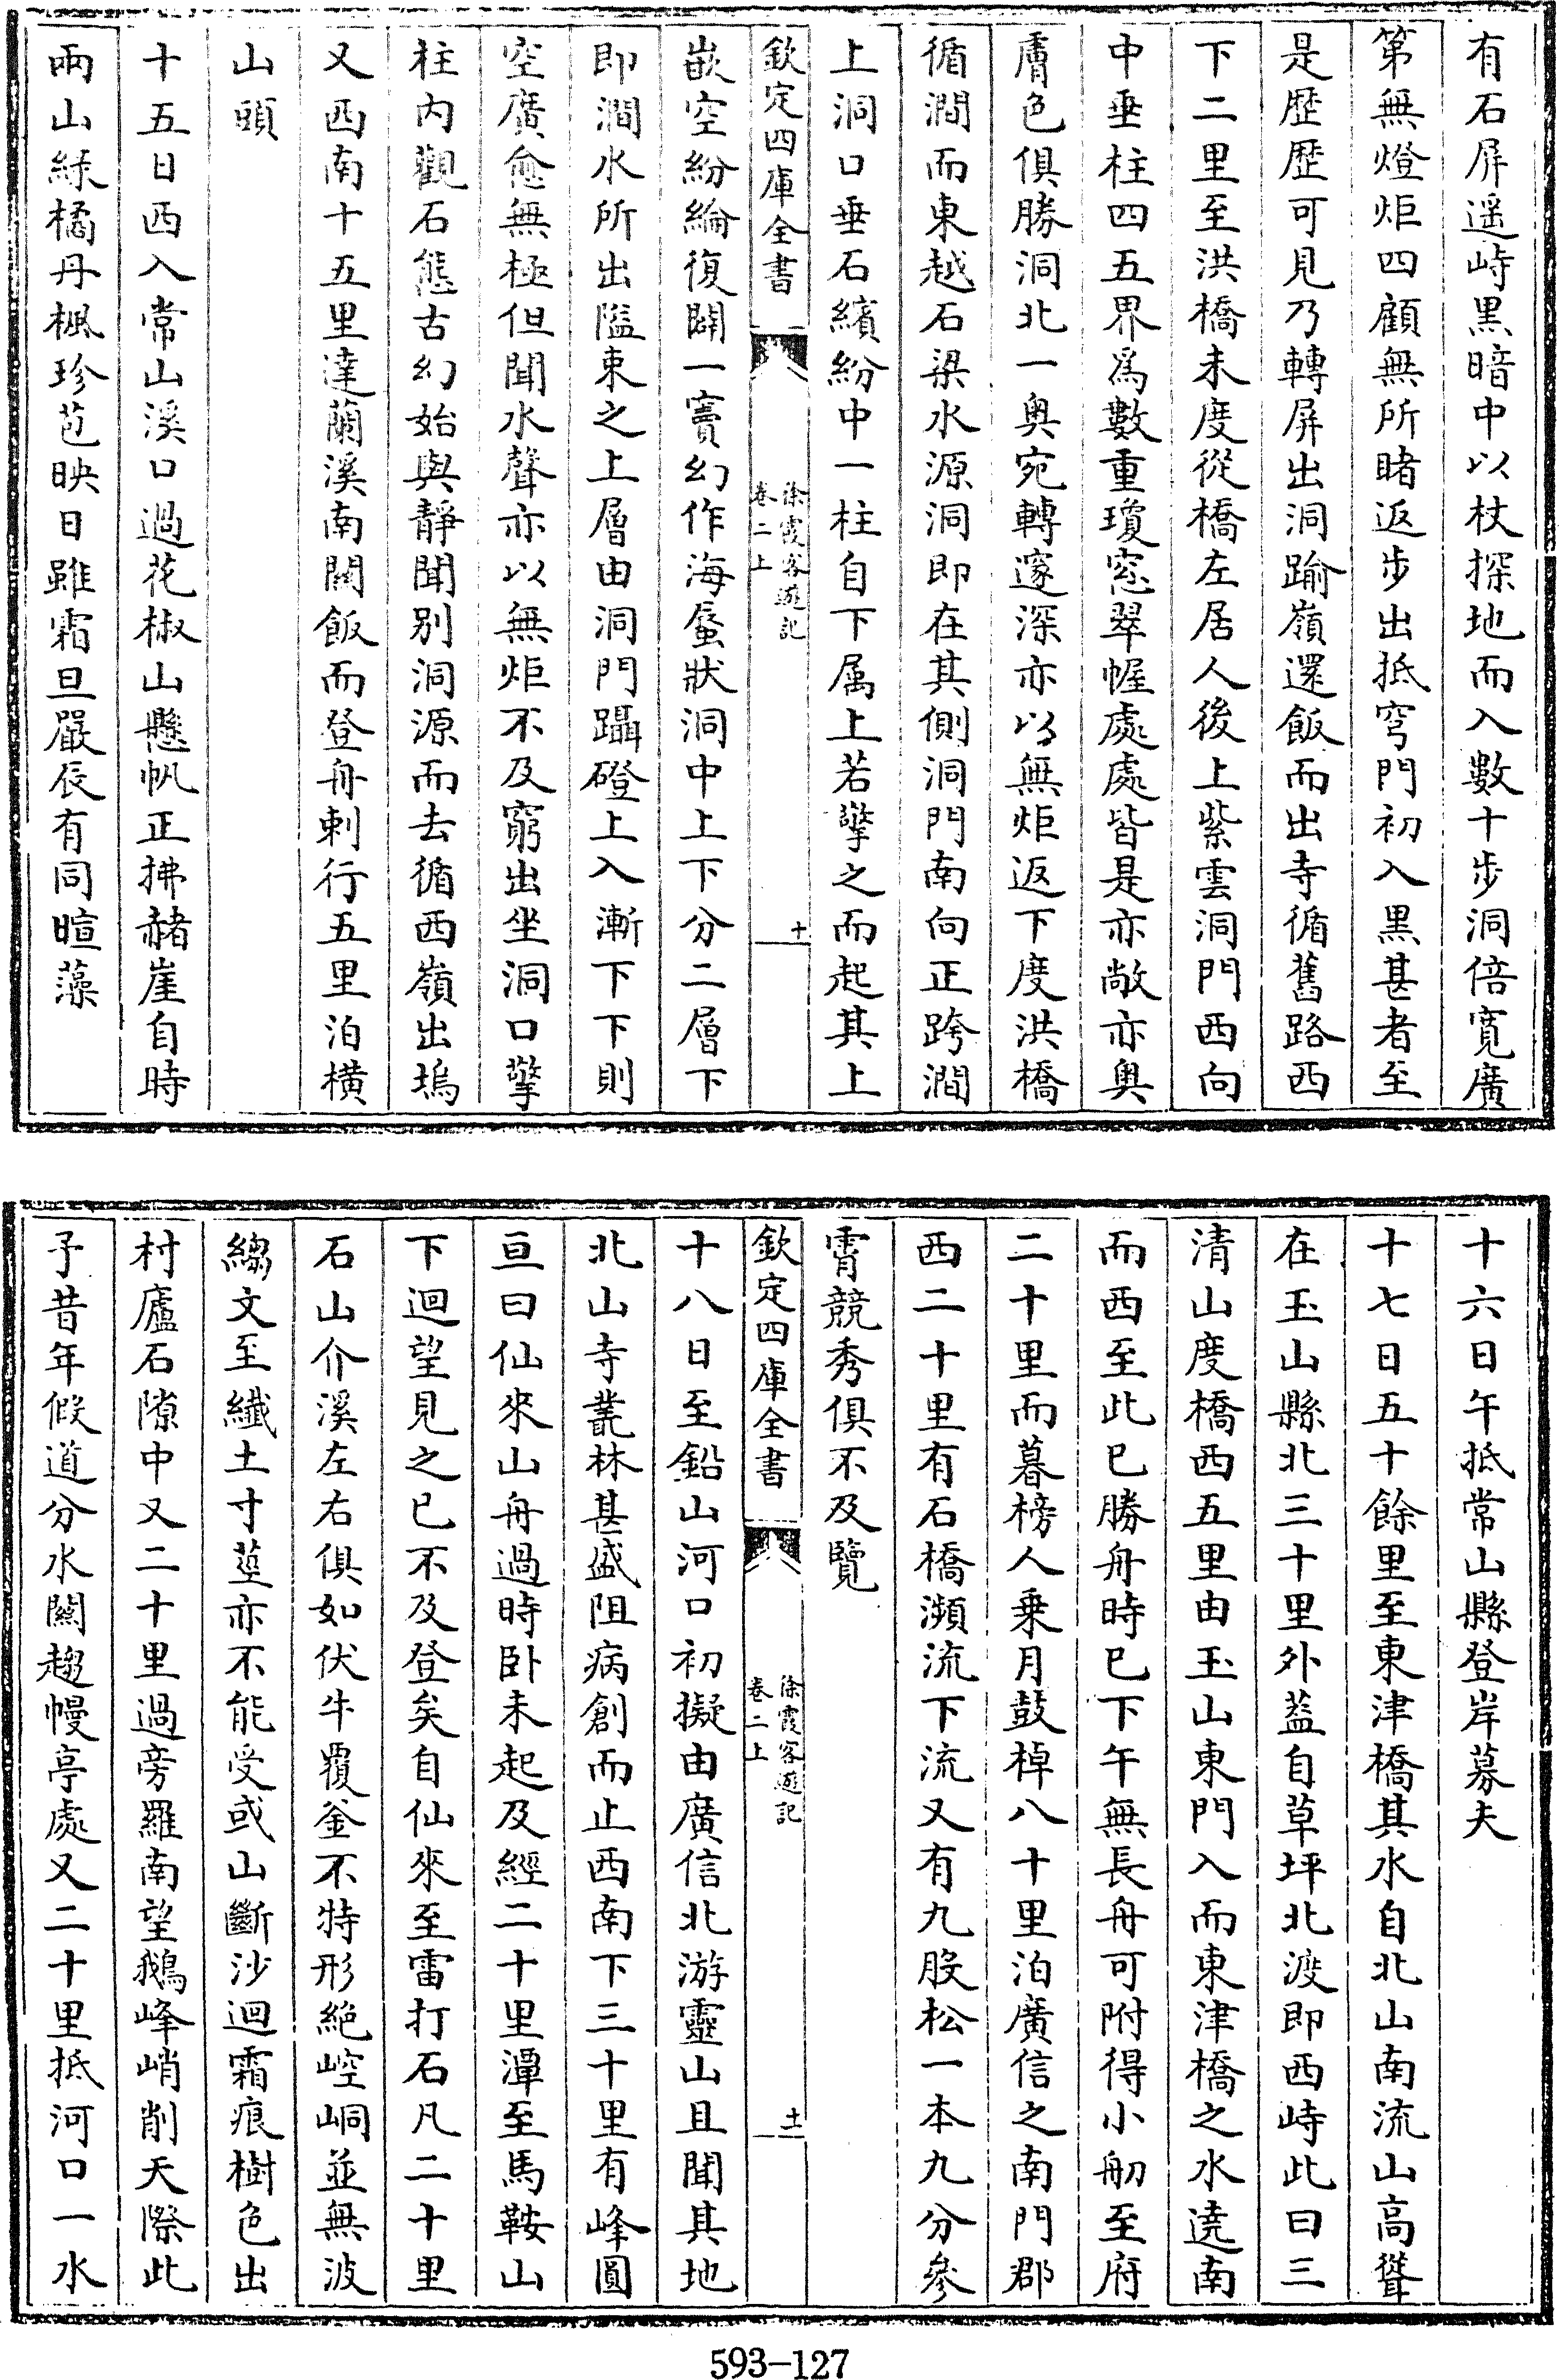 有石屏遥峙黒暗中以杖探地而入數十步洞倍寛廣
第無燈炬四顧無所睹返步出抵穹門初入黒甚者至
是歴歴可見乃轉屏出洞踰嶺還飯而出寺循舊路西
下二里至洪橋未度從橋左居人後上紫雲洞門西向
中垂柱四五界爲數重瓊窓翠幄處處皆是亦敞亦奥
膚色俱勝洞北一奥宛轉邃深亦以無炬返下度洪橋
循澗而東越石梁水源洞即在其側洞門南向正跨澗
上洞口垂石繽紛中一柱自下属上若擎之而起其上
欽定四庫全書
徐霞客遊記
卷二上
十
嵌空紛綸復闢一竇幻作海蜃狀洞中上下分二層下
即澗水所出隘束之上層由洞門躡磴上入漸下下則
空廣愈無極但聞水聲亦以無炬不及窮出坐洞口擎
柱内觀石態古幻始與靜聞别洞源而去循西嶺出塢
又西南十五里達蘭溪南闗飯而登舟剌行五里泊横
山頭
十五日西入常山溪口過花椒山懸帆正拂赭崖自時
兩山緑橘丹楓珍苞映日雖霜旦嚴辰有同暄藻
十六日午抵常山縣登岸募夫
十七日五十餘里至東津橋其水自北山南流山高聳
在玉山縣北三十里外葢自草坪北渡即西峙此曰三
清山度橋西五里由玉山東門入而東津橋之水遶南
而西至此已勝舟時已下午無長舟可附得小舠至府
二十里而暮榜人乗月鼓棹八十里泊廣信之南門郡
西二十里有石橋瀕流下流又有九股松一本九分參
霄競秀俱不及覽
欽定四庫全書
徐霞客遊記
卷二上
十一
十八日至鉛山河口初擬由廣信北游靈山且聞其地
北山寺叢林甚盛阻病創而止西南下三十里有峰圓
亘曰仙來山舟過時卧未起及經二十里潭至馬鞍山
下迴望見之已不及登矣自仙來至雷打石凡二十里
石山介溪左右俱如伏牛覆釜不特形絶崆峒並無波
縐文至纎土寸莖亦不能受或山斷沙迴霜痕樹色出
村廬石隙中又二十里過旁羅南望鵝峰峭削天際此
予昔年假道分水闗趨幔亭處又二十里抵河口一水
593-127